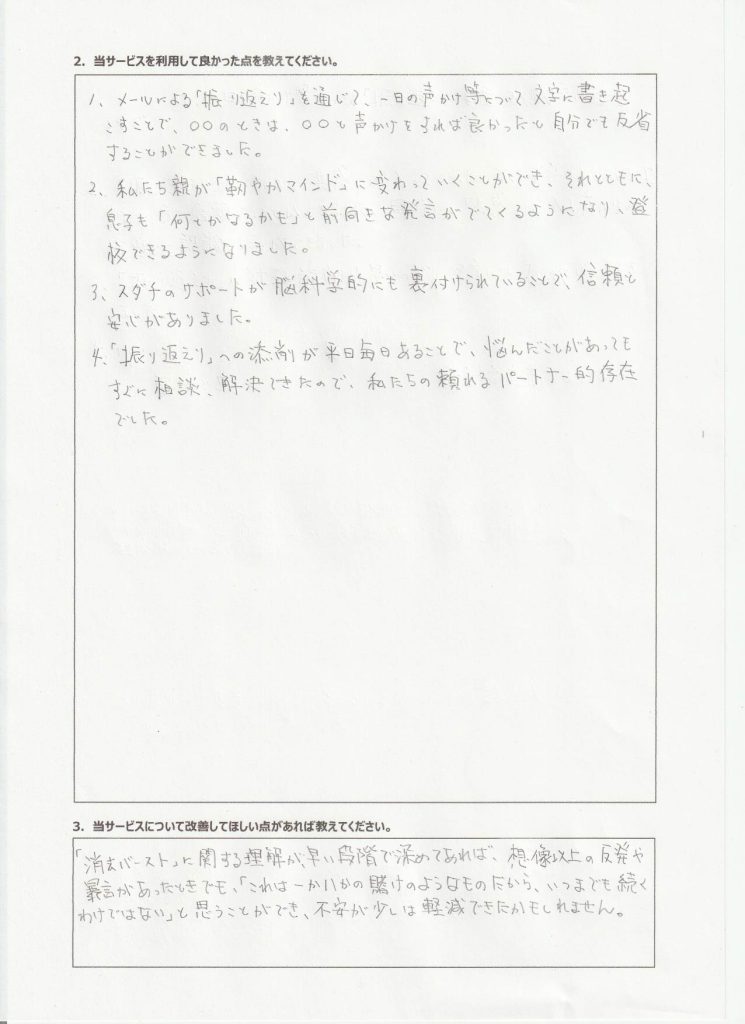 2. 当サービスを利用して良かった点を教えてください。
1、メールによる「振り返えり」を通じて、一日の声かけ等について文字に書き起
こすことで、○○のときは、○○と声かけをすれば良かったと自分でも反省
することができました。
2、私たち親が「靭やかマインド」に変わっていくことができ、それとともに、
息子も「何とかなるかも」と前向きな発言がでてくるようになり、登
校できるようになりました。
3、スダチのサポートが脳科学的にも裏付けられていることで、信頼と
安心がありました。
4、「振り返えり」への添削が平日毎日あることで、悩んだことがあっても
すぐに相談、解決できたので、私たちの頼れるパートナー的存在
でした。
3. 当サービスについて改善してほしい点があれば教えてください。
「消去バースト」に関する理解が、早い段階で深めてあれば、想像以上の反発や
暴言があったときでも、「これは一か八かの賭けのようなものだから、いつまでも続く
わけではない」と思うことができ、不安が少しは軽減できたかもしれません。